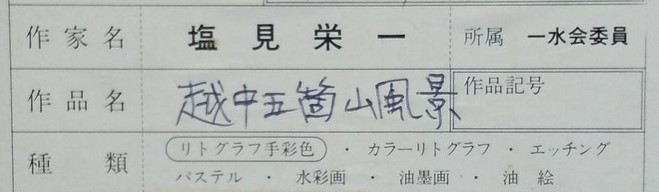 作家名 塩見栄一 所属 一水会委員
作品名 越中五箇山風景 作品記号
種類 リトグラフ手彩色 ・ カラーリトグラフ ・ エッチング
パステル ・ 水彩画 ・ 油墨画 ・ 油絵